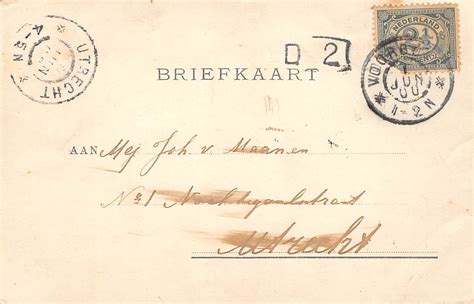 UTRECHT
4-5N
D 2
NEDERLAND
2½
JUN
00
1-2N
BRIEFKAART
AAN Mej Joh. v. Maanen
No 1 Nachtegaalstraat
Utrecht